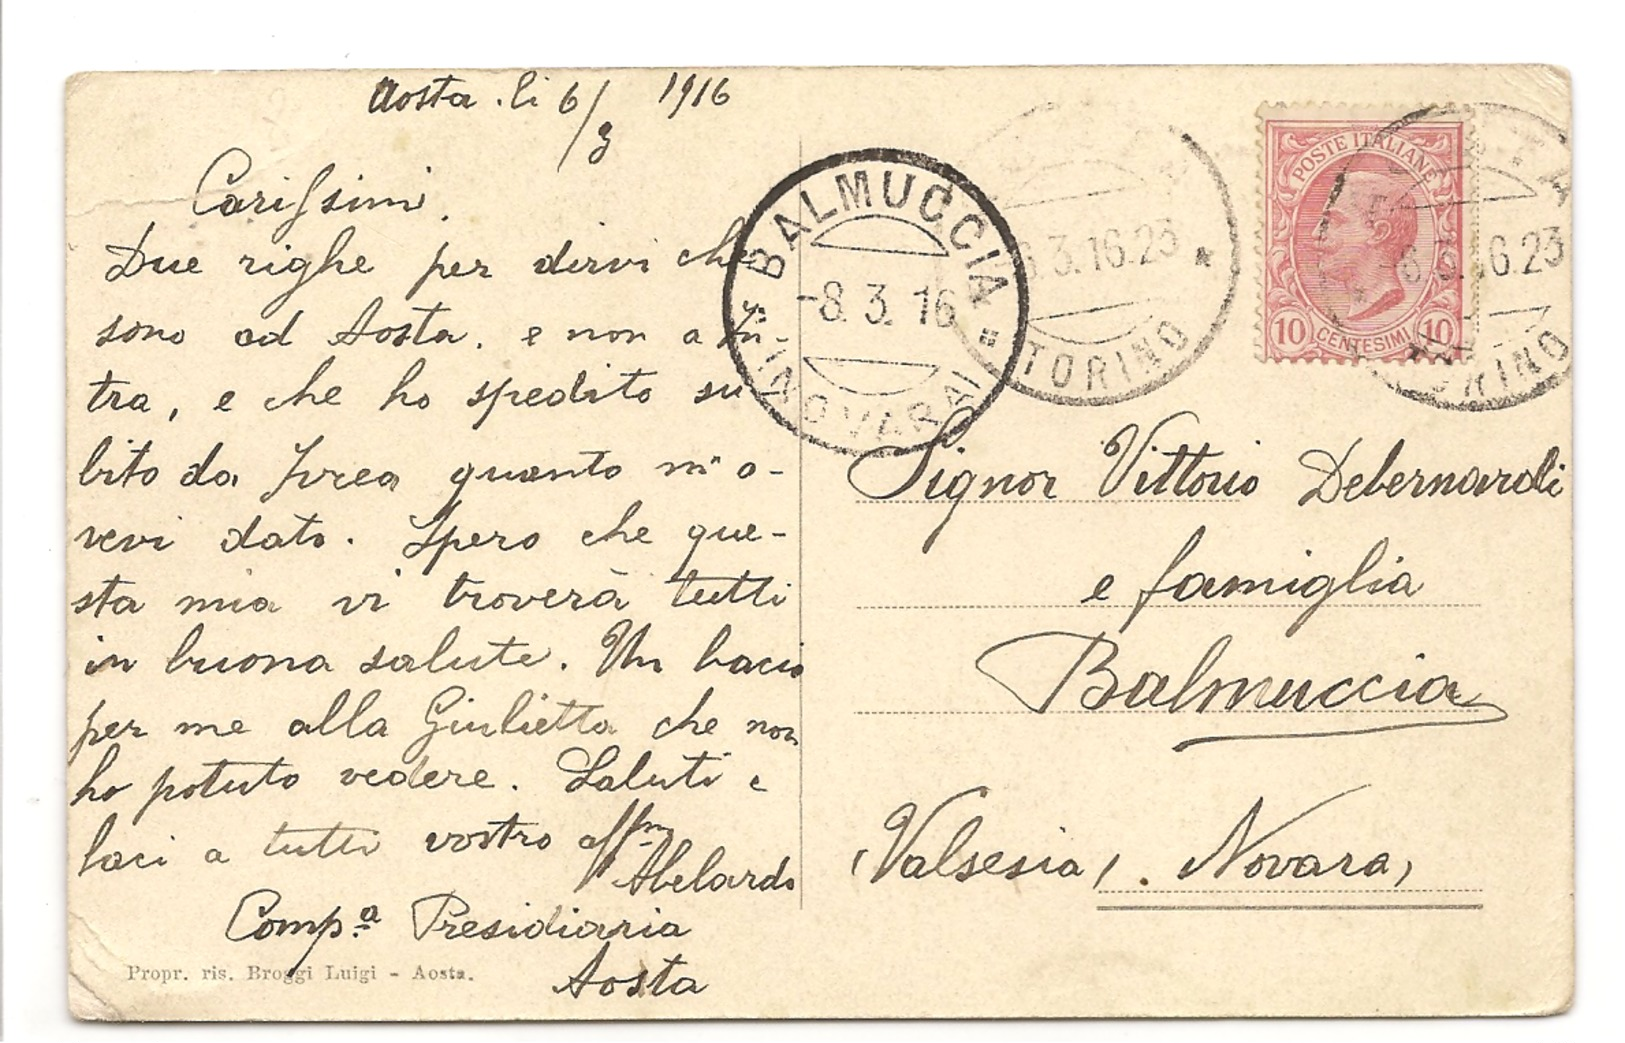 Aosta. li 6/3 1916
Carissimi.
Due righe per dirvi che
sono ad Aosta. e non a In-
tra, e che ho spedito su
bito da Ivrea quanto m'a-
vevi dato. Spero che que-
sta mia vi troverà tutti
in buona salute. Un bacio
per me alla Giulietta che non
ho potuto vedere. Saluti e
baci a tutti vostro affmo
Abelardo
Comp.a Presidiaria
Aosta
Propr. ris. Broggi Luigi - Aosta.
BALMUCCIA
-8. 3. 16
(NOVARA)
6.3.16.23
TORINO
POSTE ITALIANE
10 CENTESIMI 10
6 3. 16.23
TORINO
Signor Vittorio Debernardi
e famiglia
Balmuccia
(Valsesia). Novara,